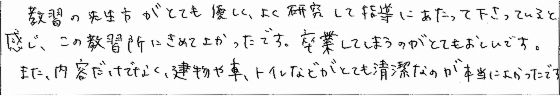 教習の先生方がとても優しく、よく研究して指導にあたって下さっていると
感じ、この教習所にきめてよかったです。卒業してしまうのがとてもおしいです。
また、内容だけでなく、建物や車、トイレなどがとても清潔なのが本当によかったです